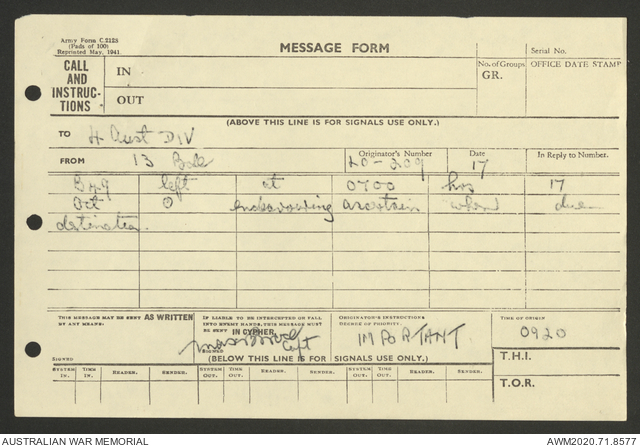 Army Form C.2128
(Pads of 100)
Reprinted May, 1941.
MESSAGE FORM
Serial No.
CALL AND INSTRUCTIONS
IN
OUT
No. of Groups
GR.
OFFICE DATE STAMP
(ABOVE THIS LINE IS FOR SIGNALS USE ONLY.)
TO 4 Aust DIV
FROM 13 Bde
Originator's Number
LO-209
Date
17
In Reply to Number.
left at 0700 hrs 17
Oct O endeavouring ascertain when due
destination.
THIS MESSAGE MAY BE SENT AS WRITTEN
BY ANY MEANS:
SIGNED
IF LIABLE TO BE INTERCEPTED OR FALL
INTO ENEMY HANDS, THIS MESSAGE MUST
BE SENT IN CYPHER.
SIGNED Capt
ORIGINATOR'S INSTRUCTIONS
DEGREE OF PRIORITY.
IMPORTANT
TIME OF ORIGIN
0920
(BELOW THIS LINE IS FOR SIGNALS USE ONLY.)
T.H.I.
T.O.R.
SYSTEM IN. TIME IN. READER. SENDER. SYSTEM OUT. TIME OUT. READER. SENDER. SYSTEM OUT. TIME OUT. READER. SENDER.
AUSTRALIAN WAR MEMORIAL
AWM2020.71.8577